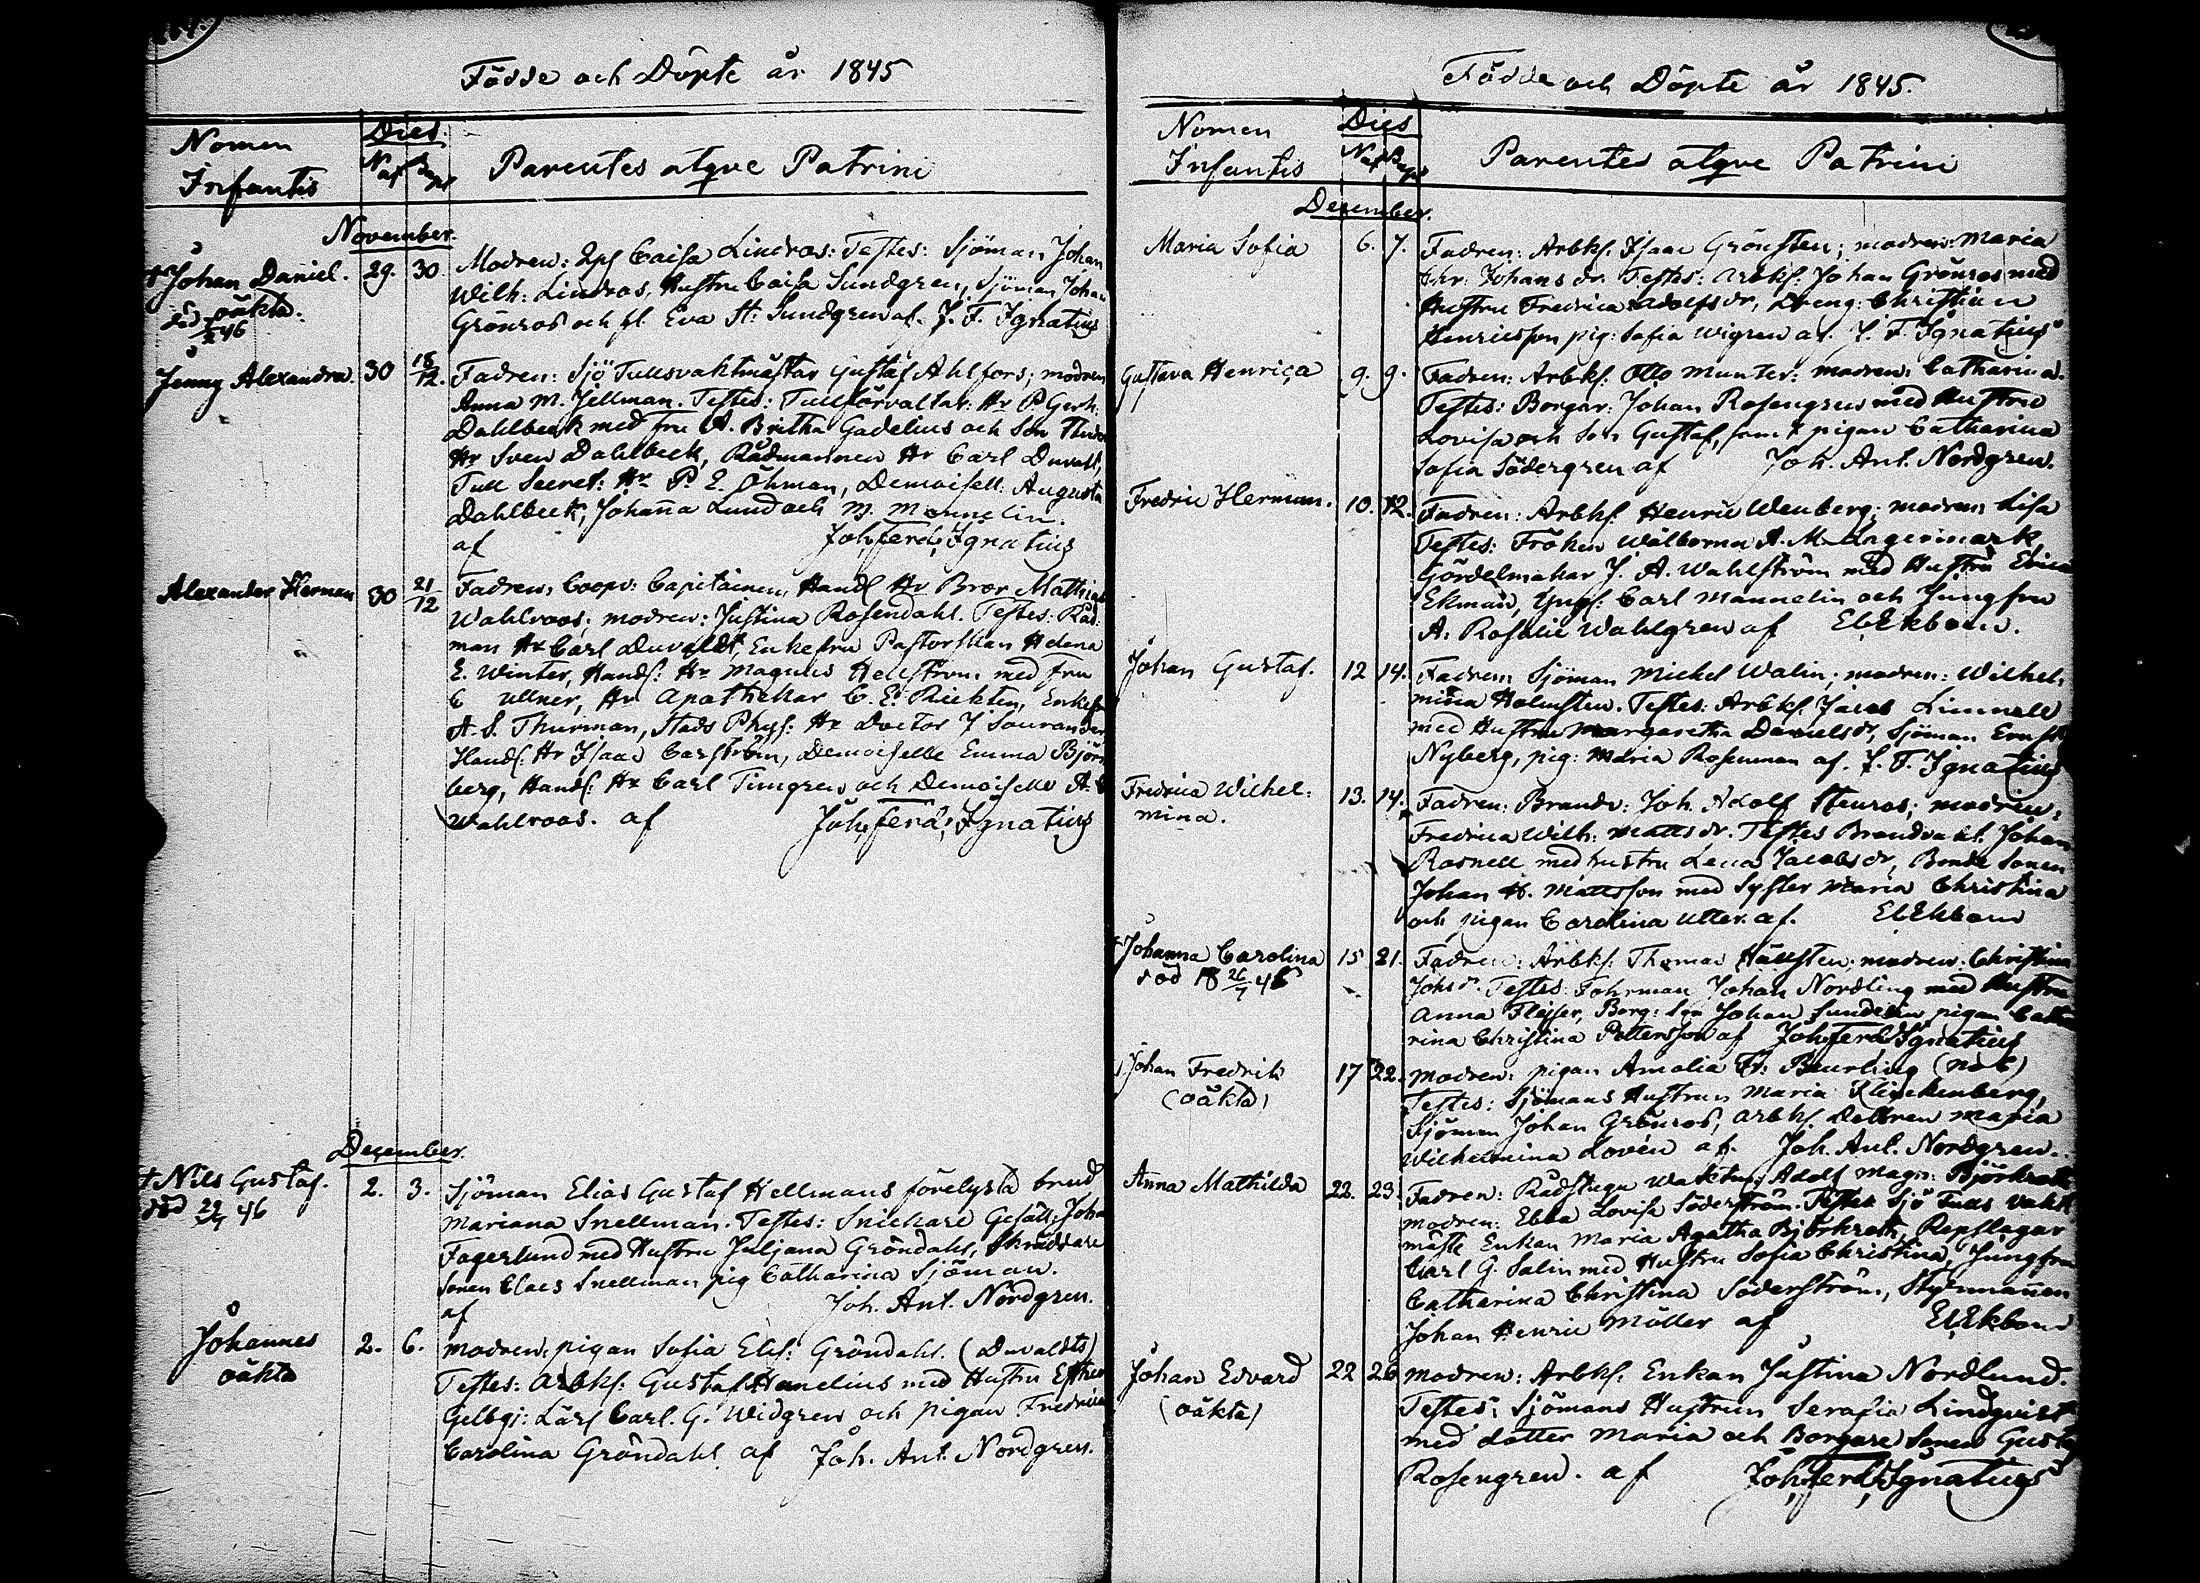 Födde och Döpte år 1845
Nomen Infantis
Dies
Nat Bapt
Parentes atqve Patrini
November.
Johan Daniel.
oäkta.
död 46
29. 30.
Modren: Caisa Lindros: Testes: Sjöman Johan
Wilh: Lindros, Hustru Caisa Sundgren, Sjöman Johan
Grönros och pl. Eva St: Sundgren af. J. F. Ignatius
Jenny Alexandra.
30 18/12.
Fadren: Sjö Tullsvaktmästar Gustaf Ahlfors; modren
Anna M. Jellman. Testes: Tullförvaltar: Hr P. Gerh.
Dahlbeck med fru A. Britha Gadelius och Son
Hr Sven Dahlbeck, Rådmannen Hr Carl Duvaldt,
Tull Secret: Hr P. E. Öhman, Demoisell: Augusta
Dahlbeck, Johanna Lund och M. Mannelin.
af Joh, Ferd, Ignatius
Alexander Herman
30 21/12
Fadren: Coopv: Capitainen, Handl Hr Bror Mathias
Wahlroos; modren: Justina Rosendahl. Testes: Råd-
man Hr Carl Duvaldt, Enkefru Pastorskan Helena
E. Winter, Handl: Hr Magnus Hellström med fru
C Ullner, Hr Apothekar C. E. Enkefru
A. S. Thurman, Stads Phys: Hr Doctor J Sourander
Handl: Hr Isaac Carström, Demoiselle Emma Björn
berg, Handl: Hr Carl Timgren och Demoiselle A.
Wahlroos. af Joh, Ferd, Ignatius
December.
† Nils Gustaf.
död 46
2. 3.
Sjöman Elias Gustaf Hellmans förelysta brud
Mariana Snellman. Testes: Snickare Gesäll: Joha
Fagerlund med Hustru Juljana Gröndahl, Skräddare
sonen Claes Snellman, pig Catharina Sjöman.
af Joh. Ant. Nordgren.
Johannes
oäkta
2. 6.
modren: pigan Sofia Elis: Gröndahl. (Duvaldts)
Testes: Arbkl: Gustaf Hanelius med Hustru
Gelbgj: Lärl Carl. G. Widgren och pigan Fredrica
Carolina Gröndahl af Joh. Ant. Nordgren.
Födde och Döpte år 1845.
Nomen Infantis
Dies
Nat Bapt
Parentes atqve Patrini
December.
Maria Sofia
6. 7.
Fadren: Arbkl. Isaac Grönsten; modren: Maria
Chr. Johans dr. Testes: Arbkl. Johan Grönros med
Hustru Fredrica Adolfs dr, Dreng: Christian
Henricsson pig: Sofia Wigren af. J. F. Ignatius
Gustava Henrica
9. 9.
Fadren: Arbkl: Otto Munter: modren: Catharina.
Testes: Borgar: Johan Rosengren med Hustru
Lovisa och Son Gustaf, samt pigan Catharina
Sofia Södergren af Joh. Ant. Nordgren.
Fredric Herman.
10. 12.
Fadren: Arbkl. Henric Wenberg; modren Lisa
Testes: Fröken Wälborna A. M. Lagermark,
Gördelmakar J. A. Wahlström med Hustru Erica
Ekman, Carl Mannelin och Jungfru
A. Rosalie Wahlgren af El. Ekbom.
Johan Gustaf.
12 14.
Fadren Sjöman Michel Walin; modren: Wilhel-
mina Holmsten. Testes: Arbkl. Jacob Linnell
med Hustru Margaretha Daniels dr, Sjöman Ernst
Nyberg, pig: Maria Rosenman af. J. F. Ignatius
Fredrica Wilhel-
mina.
13. 14.
Fadren: Brandv: Joh. Adolf Stenros; modren:
Fredrica Wilh: Matts dr. Testes Brandvakt. Johan
Rosnell med hustru Lena Jacobs dr, Bonde Sonen
Johan H. Mattsson med Syster Maria Christina
och pigan Carolina Utter. af. El Ekbom
† Johanna Carolina
död 18 26/7 46
15 21.
Fadren: Arbkl: Thomas Hällsten; modren. Christina
Johs dr. Testes: Fohrman Johan Nordling med Hustru
Anna Borg: Son Johan Sundelin pigan Catha
rina Christina Pettersson af Joh Ferd Ignatius
Johan Fredrik
(oäkta)
17 22.
modren: pigan Amalia Fr: Beurling
Testes: Sjömans Hustrun Maria Klinckenberg,
Sjöman Johan Grönros, Arbkl. Dottren Maria
Wilhelmina Lovén af. Joh. Ant. Nordgren.
Anna Mathilda
22. 23.
Fadren: Rådstugu Waktm: Adolf Magn: Björkroth
modren: Ebba Lovisa Söderström. Testes Sjö Tulls vakt
mäst: Enkan Maria Agatha Björkroth, Repslagar
Carl G. Salin med Hustru Sofia Christina, Jungfru
Catharina Christina Söderström, Styrmannen
Johan Henric Möller af El Ekbom
Johan Edvard
(oäkta)
22 26
modren: Arbkl: Enkan Justina Nordlund.
Testes: Sjömans Hustrun Serafia Lindqvist
med dotter Maria och Borgare Sonen Gustaf
Rosengren. af Joh, Ferd, Ignatius